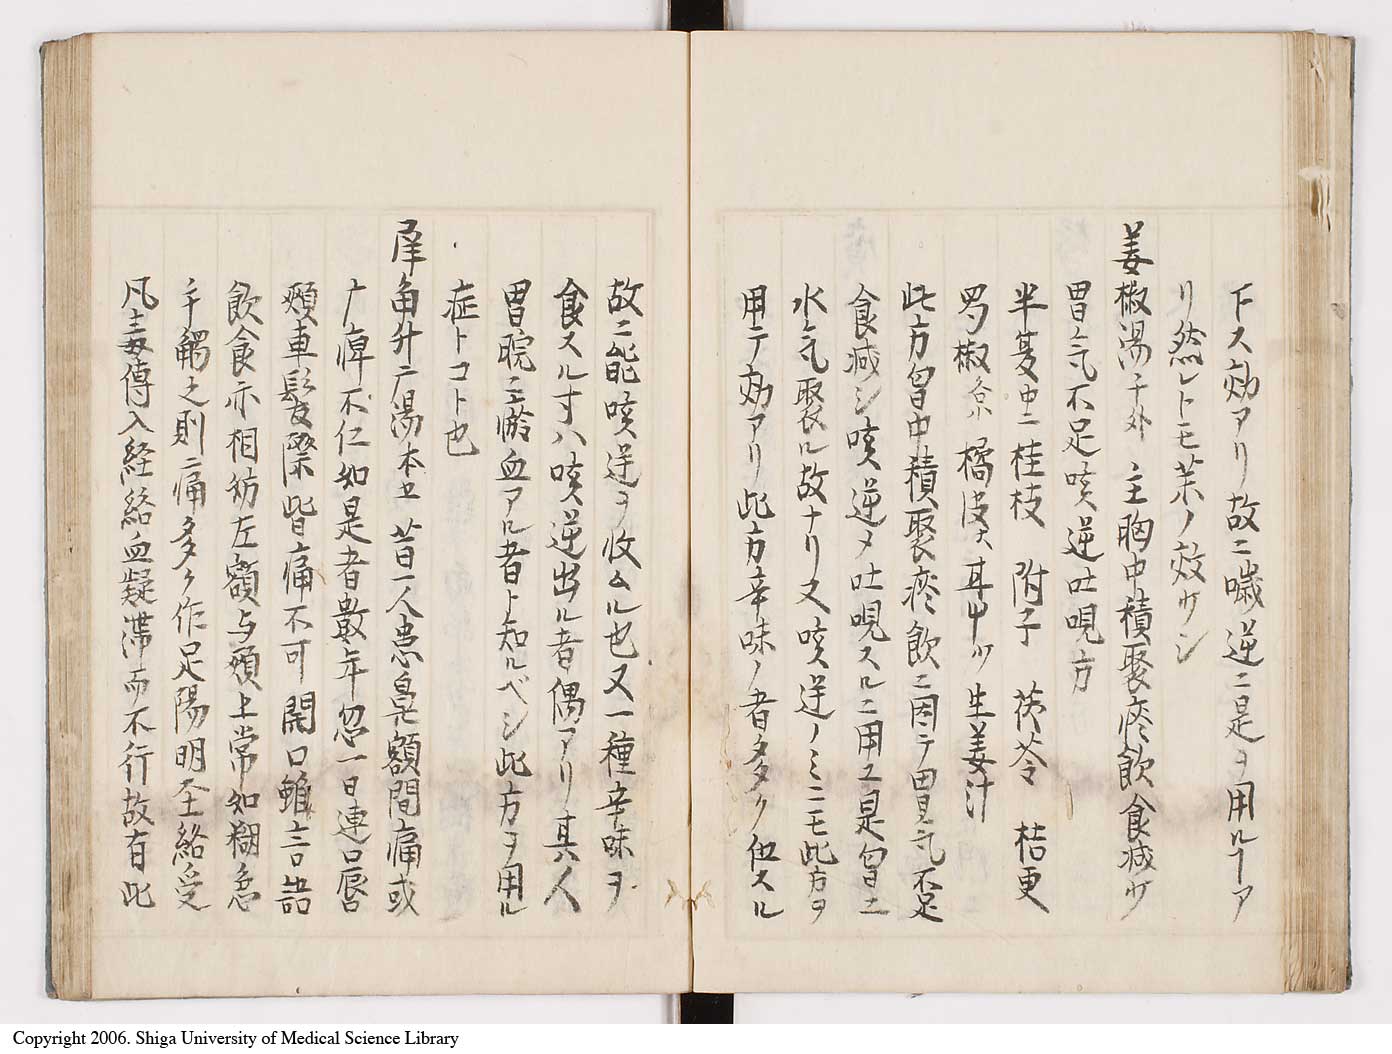 下ス効アリ故ニ噦逆ニ是ヲ用ルヿア
リ然レトモ茱ノ效少シ
姜椒湯千外 主胸中積聚痰飲食減少
胃气不足咳逆吐唲方
半夏中ニ桂枝 附子 茯苓 桔更
蜀椒 橘皮大 耳中少 生姜汁
此方胷中積聚痰飲ニ因テ胃气不足
食减シ咳逆メ吐唲スルニ用ユ是胷ニ
水气聚ル故ナリ又咳逆ノミニモ此方ヲ
用テ効アリ此方辛味ノ者多ク伍スル
故ニ能咳逆ヲ收ムル也又一種辛味ヲ
食スル寸ハ咳逆出ル者偶アリ其人
胃脘ニ瘀血アル者ト知ルベシ此方ヲ用ル
症トコト也
犀角升广湯本士 昔一人患鼻額間痛或
广痺不仁如是者數年忽一日連口唇
頬車髮際皆痛不可開口雖言語
飲食亦相妨左額与頬上常如糊急
手觸之則ニ痛多ク作足陽明圣絡受
凡毒傳入経絡血凝滯而不行故有此
Copyright 2006. Shiga University of Medical Science Library